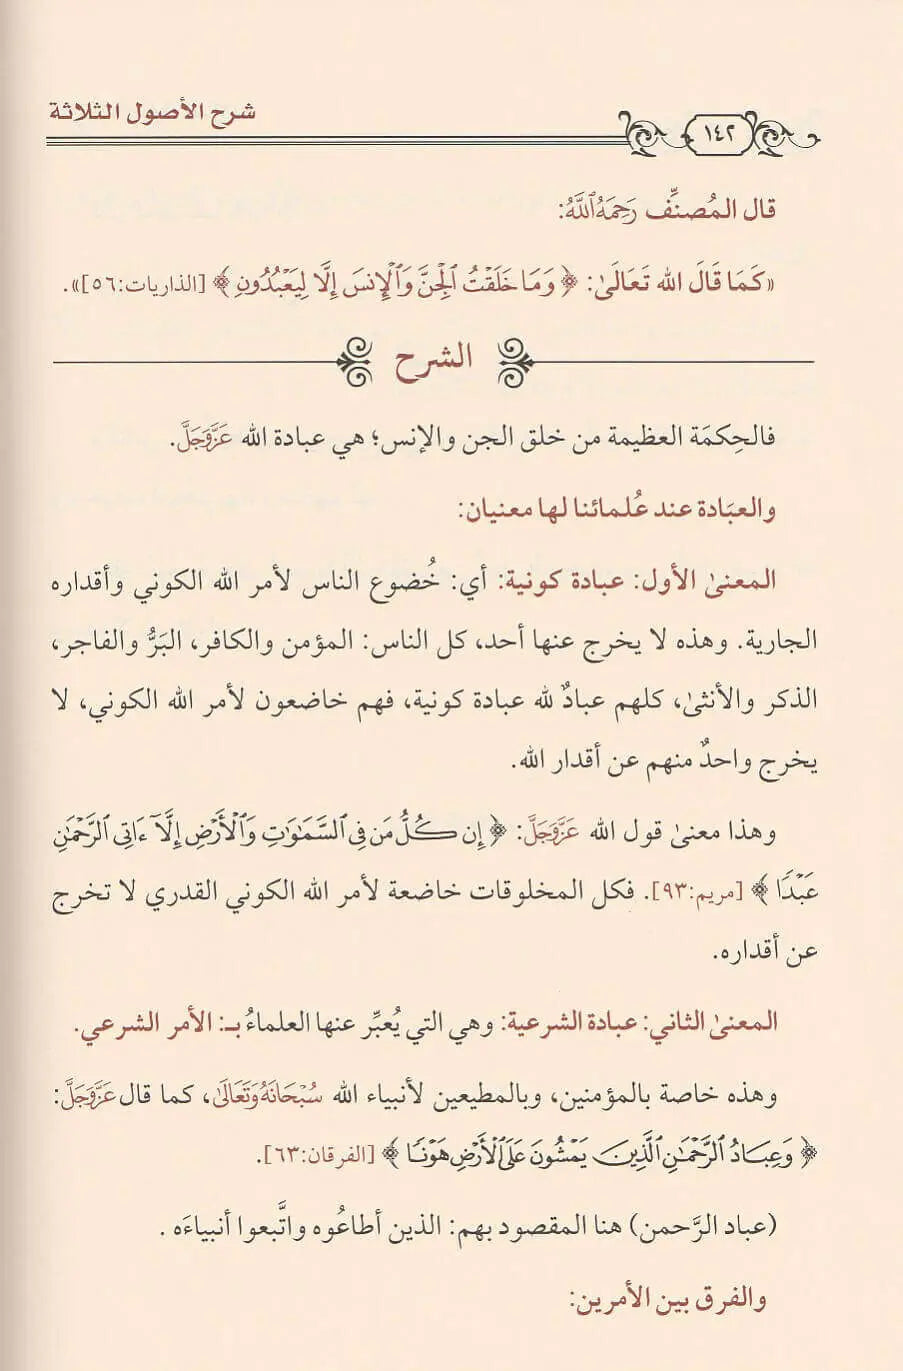 شرح الأصول الثلاثة
١٤٢
قال المُصنِّف رَحِمَهُ ٱللَّهُ:
«كَمَا قَالَ الله تَعَالَىٰ: ﴿وَمَا خَلَقْتُ ٱلْجِنَّ وَٱلْإِنسَ إِلَّا لِيَعْبُدُونِ﴾ [الذاريات:٥٦]».
الشرح
فالحِكمَة العظيمة من خلق الجن والإنس؛ هي عبادة الله عَزَّوَجَلَّ.
والعبَادة عند عُلمائنا لها معنيان:
المعنىٰ الأول: عبادة كونية: أي: خُضوع الناس لأمر الله الكوني وأقداره
الجارية. وهذه لا يخرج عنها أحد، كل الناس: المؤمن والكافر، البَرُّ والفاجر،
الذكر والأنثىٰ، كلهم عبادٌ لله عبادة كونية، فهم خاضعون لأمر الله الكوني، لا
يخرج واحدٌ منهم عن أقدار الله.
وهذا معنىٰ قول الله عَزَّوَجَلَّ: ﴿إِن كُلُّ مَن فِى ٱلسَّمَٰوَٰتِ وَٱلْأَرْضِ إِلَّآ ءَاتِى ٱلرَّحْمَٰنِ
عَبْدًا﴾ [مريم:٩٣]. فكل المخلوقات خاضعة لأمر الله الكوني القدري لا تخرج
عن أقداره.
المعنىٰ الثاني: عبادة الشرعية: وهي التي يُعبِّر عنها العلماءُ بـ: الأمر الشرعي.
وهذه خاصة بالمؤمنين، وبالمطيعين لأنبياء الله سُبْحَانَهُ وَتَعَالَىٰ، كما قال عَزَّوَجَلَّ:
﴿وَعِبَادُ ٱلرَّحْمَٰنِ ٱلَّذِينَ يَمْشُونَ عَلَى ٱلْأَرْضِ هَوْنًا﴾ [الفرقان:٦٣].
(عباد الرَّحمن) هنا المقصود بهم: الذين أطاعُوه واتَّبعوا أنبياءَه .
والفرق بين الأمرين: